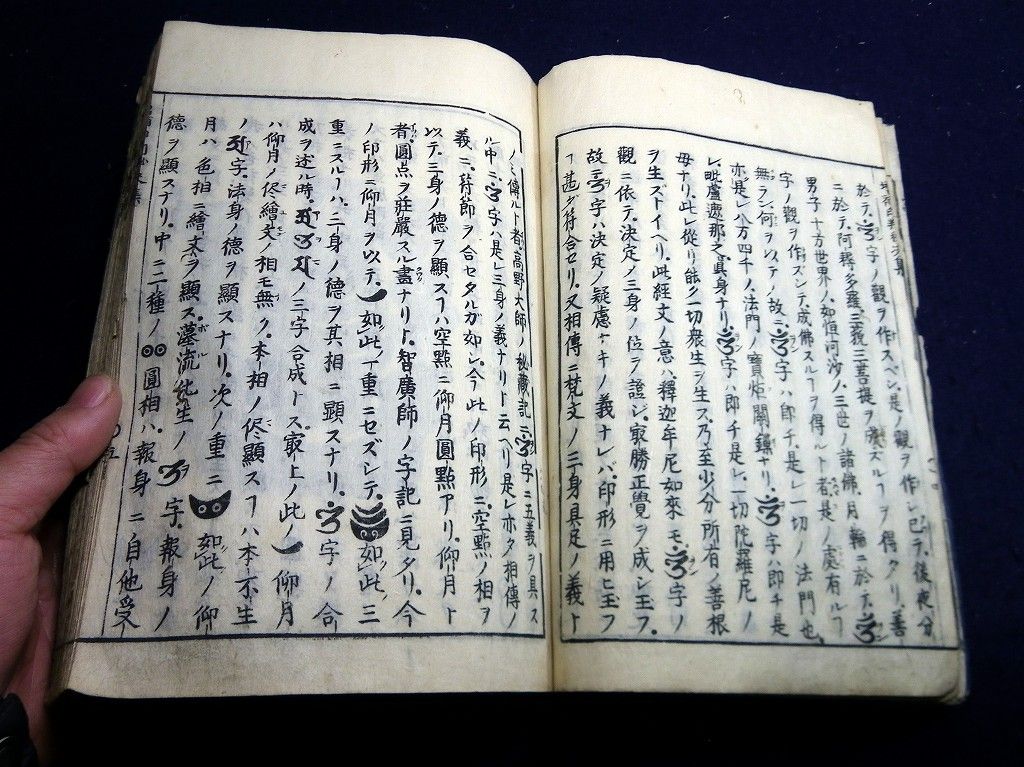 於テ字ノ觀ヲ作スベシ是ノ觀ヲ作シ已テ後夜分
ニ於テ阿耨多羅三藐三菩提ヲ成ズルヿヲ得タリ善
男子十方世界ノ如恒河沙ノ三世ノ諸佛月輪ニ於テ
字ノ觀ヲ作ズシテ成佛スルヿヲ得ルト者是ノ處有ルヿ
無ラン何ヲ以テノ故ニ字ハ即チ是レ一切ノ法門也
亦是レ八方四千ノ法門ノ寶炬關鑰ナリ字ハ即チ是
レ毗盧遮那之眞身ナリ字ハ即チ是レ一切陀羅尼ノ
母ナリ此レ從リ能ク一切衆生ヲ生ス乃至少分所有ノ善根
ヲ生ズトイヘリ此經文ノ意ハ釋迦牟尼如來モ字ノ
觀ニ依テ決定ノ三身ノ位ヲ證シ㝡勝正覺ヲ成シ玉フ
故ニ字ハ決定ノ疑慮ナキノ義ナレバ印形ニ用ヒ玉フ
ヿ甚ダ符合セリ又相傳ニ梵文ノ三身具足ノ義ト
ノ傳ルト者高野大師ノ秘藏記ニ字ニ五義ヲ具ス
ル中ニ字ハ是レ三身ノ義ナリト云ヘリ是レホタ相傳ノ
義ニ符節ヲ合セタルガ如シ今此ノ印形ニ空點ノ相ヲ
以テ三身ノ德ヲ顯スヿハ空點ニ仰月圓點アリ仰月ト
者圓点ヲ莊嚴スル畫ナリト智廣師ノ字記ニ見タリ今
ノ印形ニ仰月ヲ以テ如此一重ニセズシテ如此三
重ニスルヿハ三身ノ德ヲ其相ニ顯スナリ字ノ合
成ヲ述ル時ノ三字合成トス㝡上ノ此ノ仰月
ハ仰月ノ侭繪文ノ相モ無ク本相ノ侭顯スヿハ本不生
ノ字法身ノ德ヲ顯スナリ次ノ重ニ如此ノ仰
月ハ色相ニ繪文ヲ顯ス蓬流化生ノ字報身ノ
德ヲ顯スナリ中ニ二種ノ圓相ハ報身ニ自他受